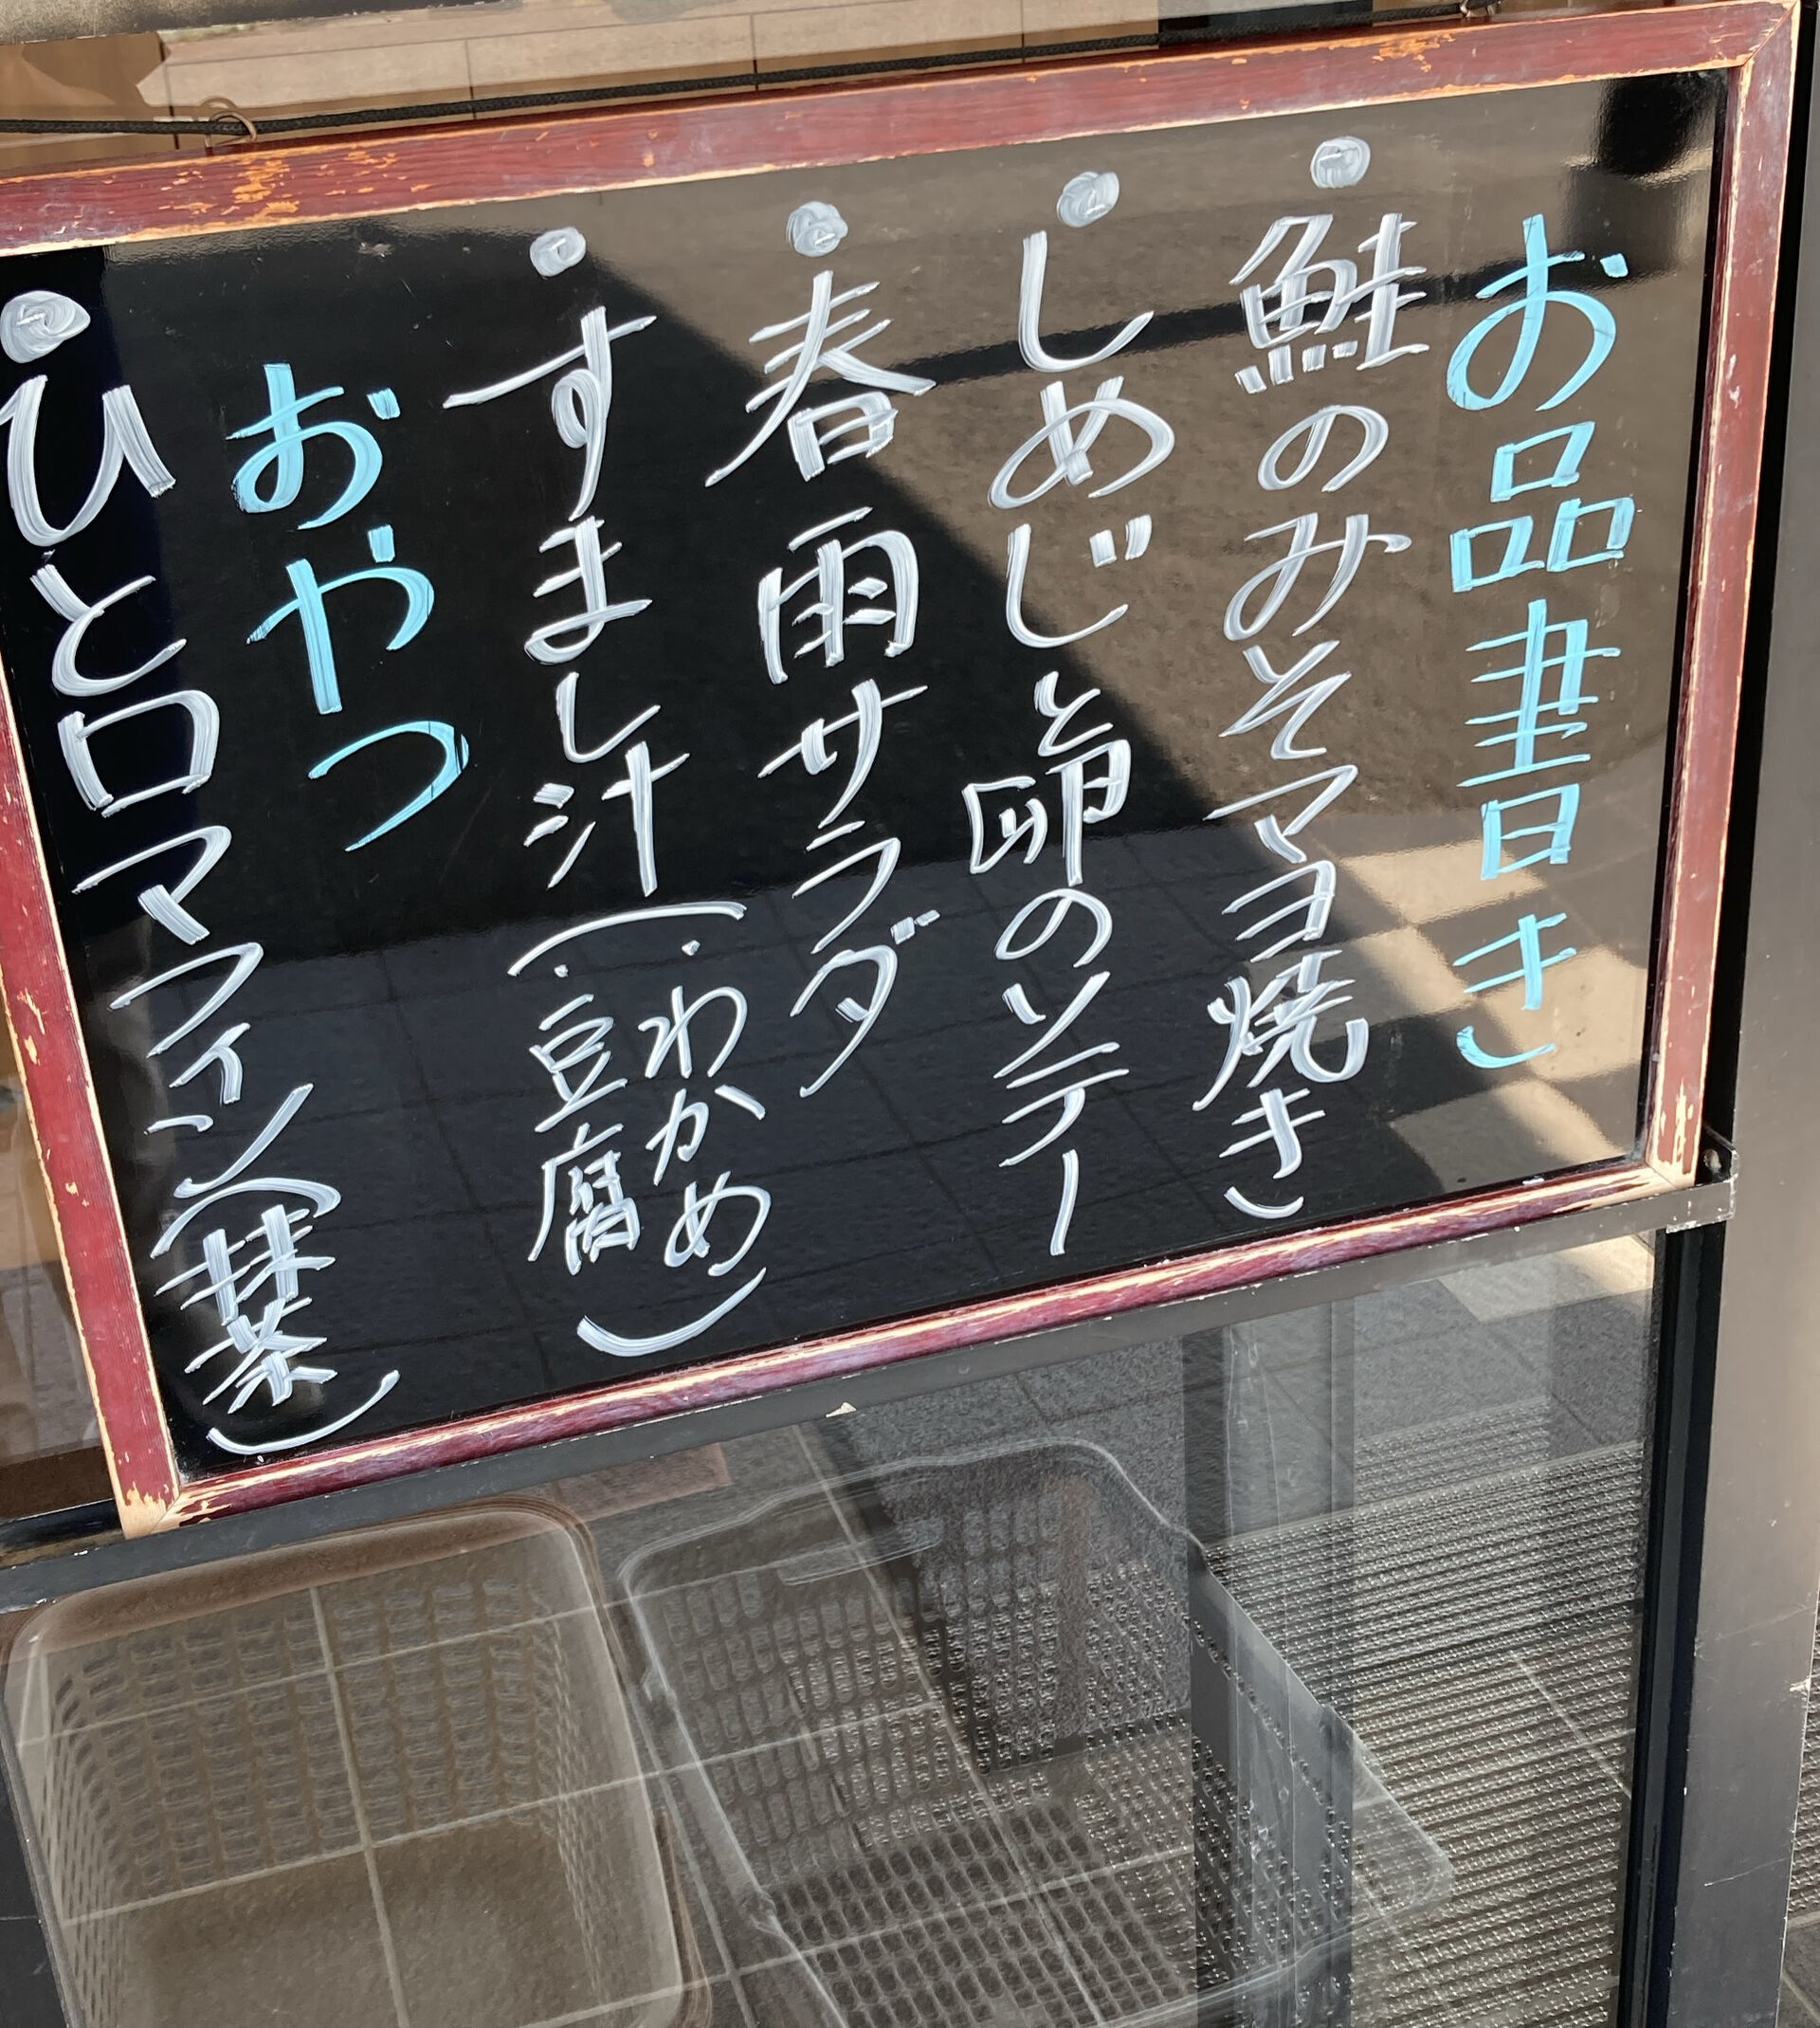 お品書き
●鮭のみそマヨ焼き
●しめじと卵のソテー
●春雨サラダ
●すまし汁(・わかめ
・豆腐)
おやつ
●ひと口マフィン(抹茶)